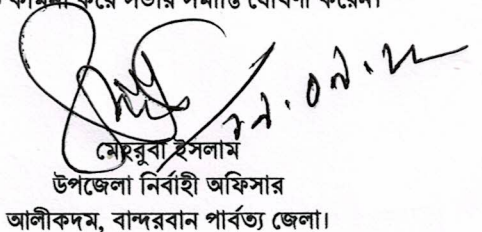 কামনা করে সভার সমাপ্তি ঘোষণা করেন।
মেহরুবা ইসলাম
উপজেলা নির্বাহী অফিসার
আলীকদম, বান্দরবান পার্বত্য জেলা।